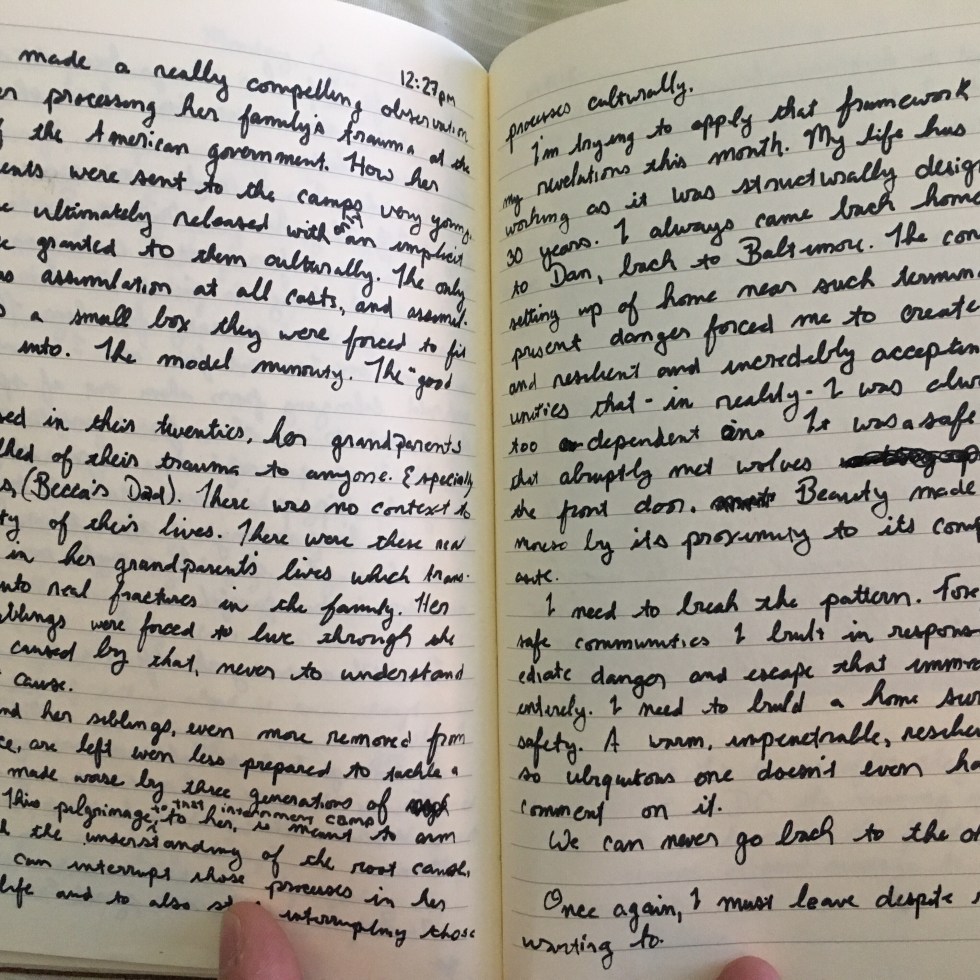 12:27pm
made a really compelling observation
processing her family's trauma at the
the American government. How her
were sent to the camps very young.
ultimately released with only an implicit
granted to them culturally. The only
assumilation at all costs, and assumil-
a small box they were forced to fit
into. The model minority. The "good
in their twenties, her grandparents
of their trauma to anyone. Especially
(Becca's Dad). There was no context to
of their lives. There were these new
in her grandparent's lives which trans-
into real fractures in the family. Her
were forced to live through the
caused by that, never to understand
cause.
her siblings, even more removed from
are left even less prepared to tackle a
made worse by three generations of
This pilgrimage, to that internment camp, to her, is meant to arm
the understanding of the root cause,
can interrupt those processes in her
life and to also interrupting those
processes culturally.
I'm trying to apply that framework
my revelations this month. My life has
working as it was structurally
30 years. I always came back home
to Dan, back to Baltimore. The
setting up of home near such
present danger forced me to create
and resilient and incredibly
that - in reality - I was
too dependent on. It was a safe
that abruptly met wolves
the front door. Beauty made
by its proximity to its
I need to break the pattern.
safe communities I built in
danger and escape that
entirely. I need to build a home
safety. A warm, impenetrable,
so ubiquitous one doesn't even
comment on it.
We can never go back to the
Once again, I must leave despite
wanting to.